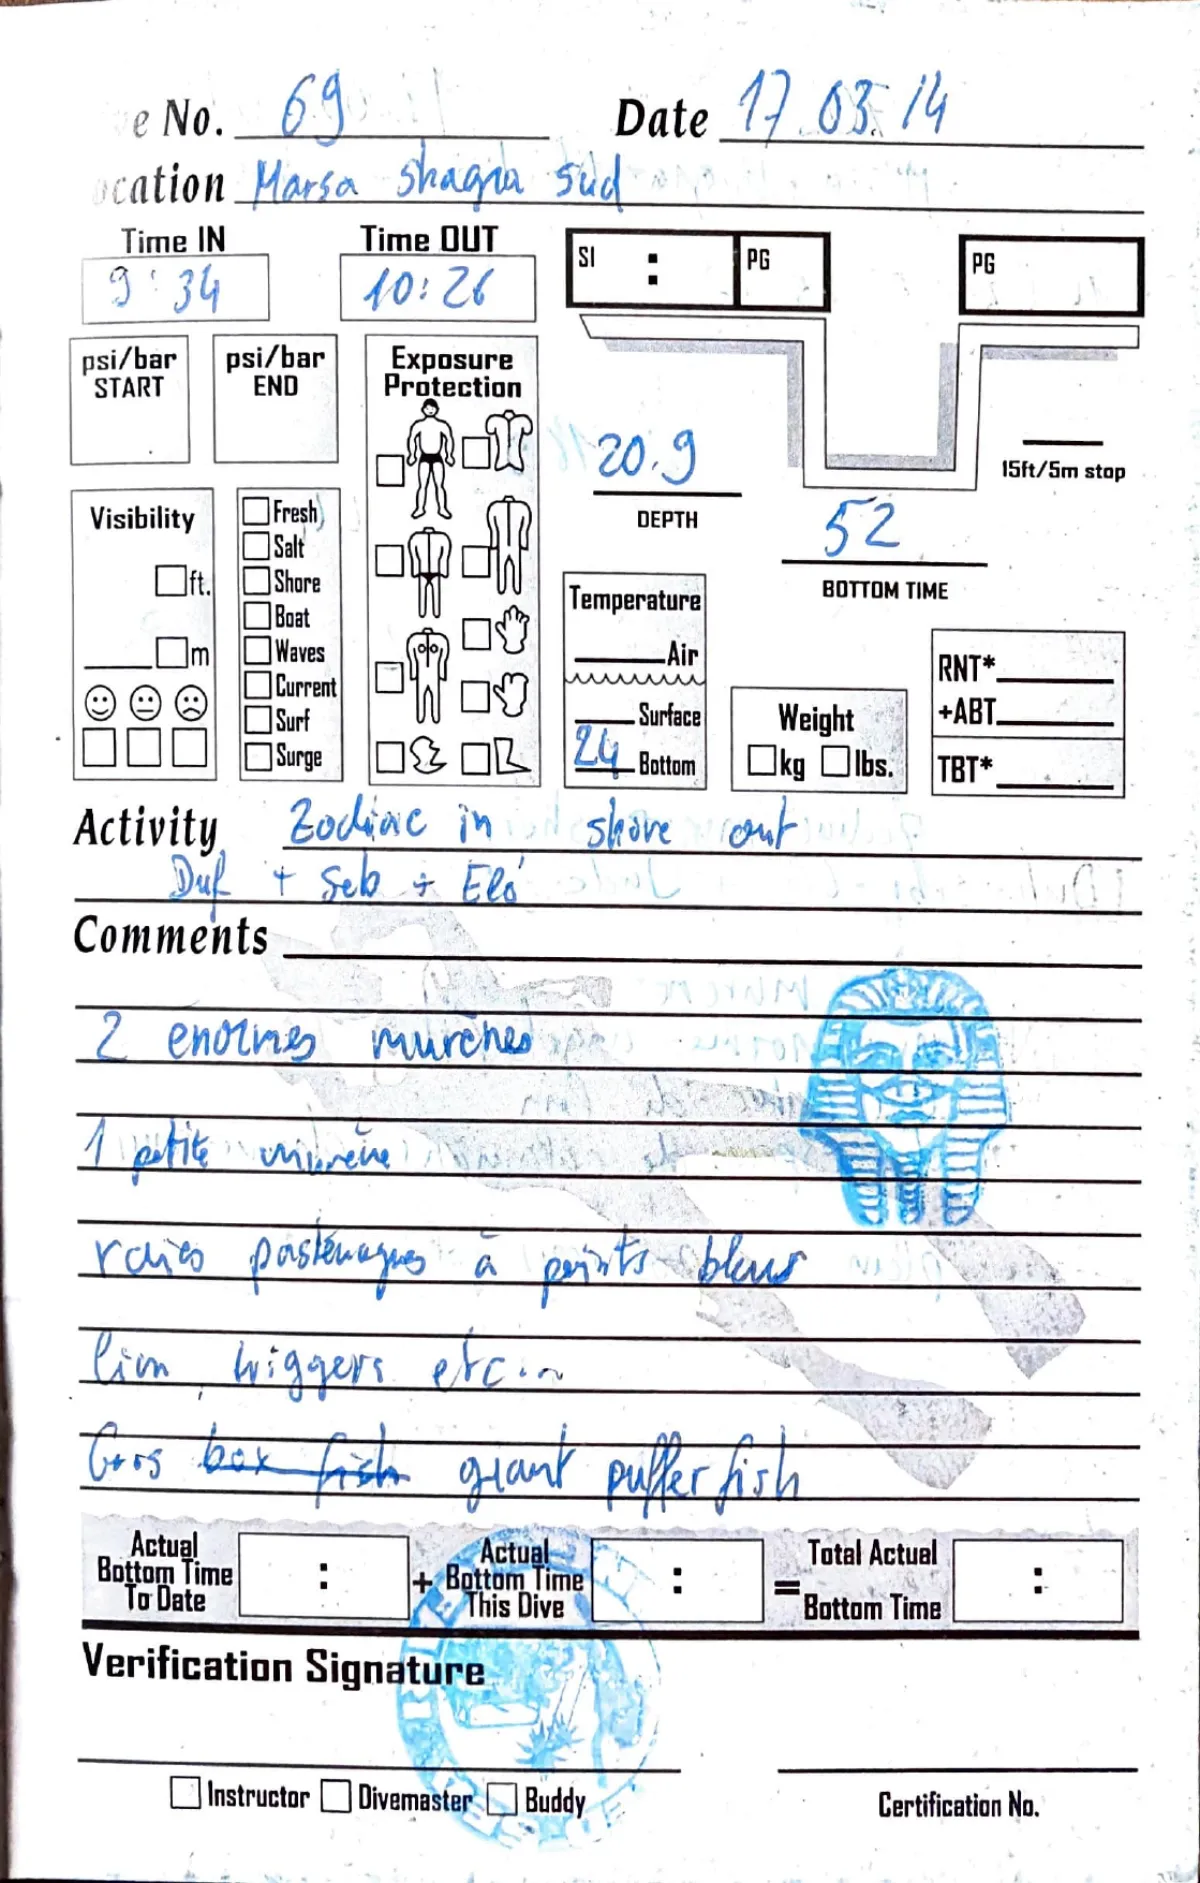 e No. 69 Date 17.03.14
ocation Marsa shagra sud
Time IN Time OUT
9:34 10:26
SI : PG PG
psi/bar START psi/bar END Exposure Protection
20.9 DEPTH
15ft/5m stop
52 BOTTOM TIME
Visibility
ft.
m
Fresh
Salt
Shore
Boat
Waves
Current
Surf
Surge
Temperature
Air
Surface
24 Bottom
Weight
kg lbs.
RNT*
+ABT
TBT*
Activity Zodiac in shore out
Duf + Seb + Elo
Comments
2 enormes murènes
1 petite murène
raies pasténagues à points bleus
lion, triggers etc...
Gros box fish giant pufferfish
Actual Bottom Time To Date : + Actual Bottom Time This Dive : = Total Actual Bottom Time :
Verification Signature
Instructor Divemaster Buddy Certification No.